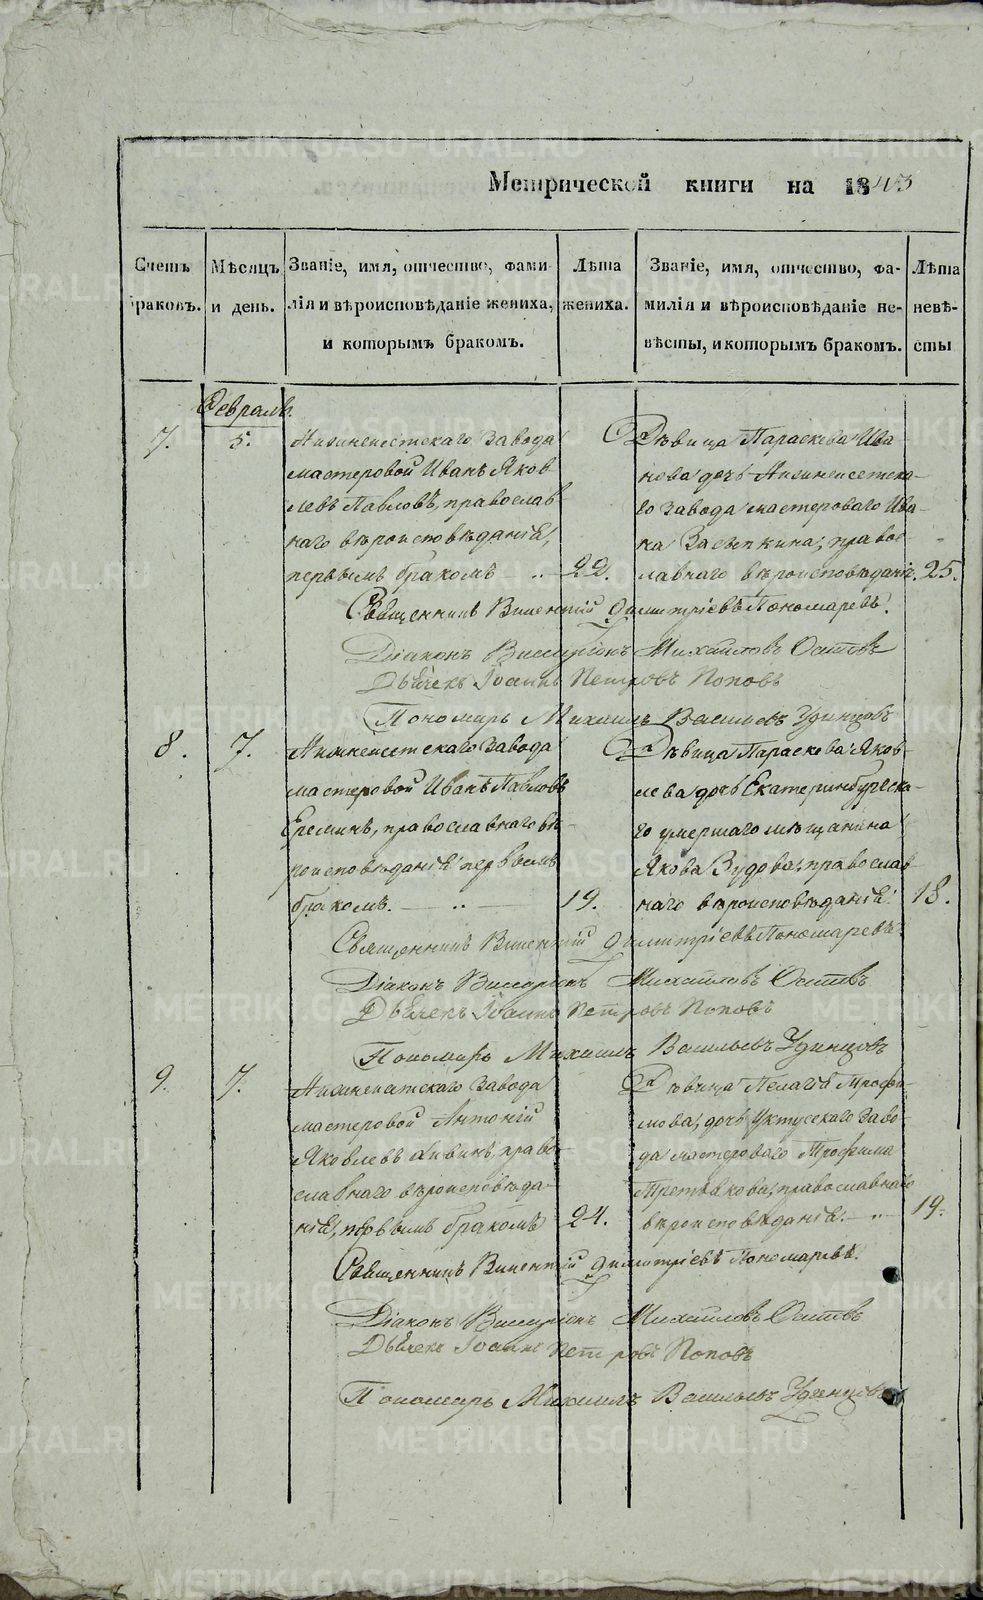 Метрической книги на 1843
Счетъ браковъ.
Мѣсяцъ и день.
Званіе, имя, отчество, фами-
лія и вѣроисповѣданіе жениха,
и которымъ бракомъ.
Лѣта
жениха.
Званіе, имя, отчество, фа-
милія и вѣроисповѣданіе не-
вѣсты, и которымъ бракомъ.
Лѣта
невѣ-
сты
Февраль.
7.
5.
Нижнеисетскаго Завода
мастеровой Иванъ Яков
левъ Павловъ, православ
наго вѣроисповѣданія,
первымъ бракомъ
22.
Дѣвица Параскева Ива
нова дочь Нижнеисетска-
го завода мастероваго Ива-
на Засыпкина, право
славнаго вѣроисповѣданія.
25.
Священникъ Викентій Димитріевъ Пономаревъ.
Діаконъ Виссаріонъ Михайловъ
Дьячекъ Іоаннъ Петровъ Поповъ
Пономарь Михаилъ Васильевъ Удинцовъ
8.
7.
Нижнеисетскаго завода
мастеровой Иванъ Павловъ
Ереминъ, православнаго вѣ-
роисповѣданія первымъ
бракомъ.
19.
Дѣвица Параскева Яков-
лева дочь Екатеринбургска-
го умершаго мѣщанина
Якова православ
наго вѣроисповѣданія.
18.
Священникъ Викентій Димитріевъ Пономаревъ
Діаконъ Виссаріонъ Михайловъ
Дьячекъ Іоаннъ Петровъ Поповъ
Пономарь Михаилъ Васильевъ Удинцовъ
9.
7.
Нижнеисетскаго завода
мастеровой Антоній
Яковлевъ право
славнаго вѣроисповѣда-
нія, первымъ бракомъ
24.
Дѣвица Пелагія Трофи-
мова, дочь Уктусскаго заво
да мастероваго Трофима
Третьякова, православнаго
вѣроисповѣданія.
19.
Священникъ Викентій Димитріевъ Пономаревъ.
Діаконъ Виссаріонъ Михайловъ
Дьячекъ Іоаннъ Петровъ Поповъ
Пономарь Михаилъ Васильевъ Удинцовъ
METRIKI.GASO-URAL.RU